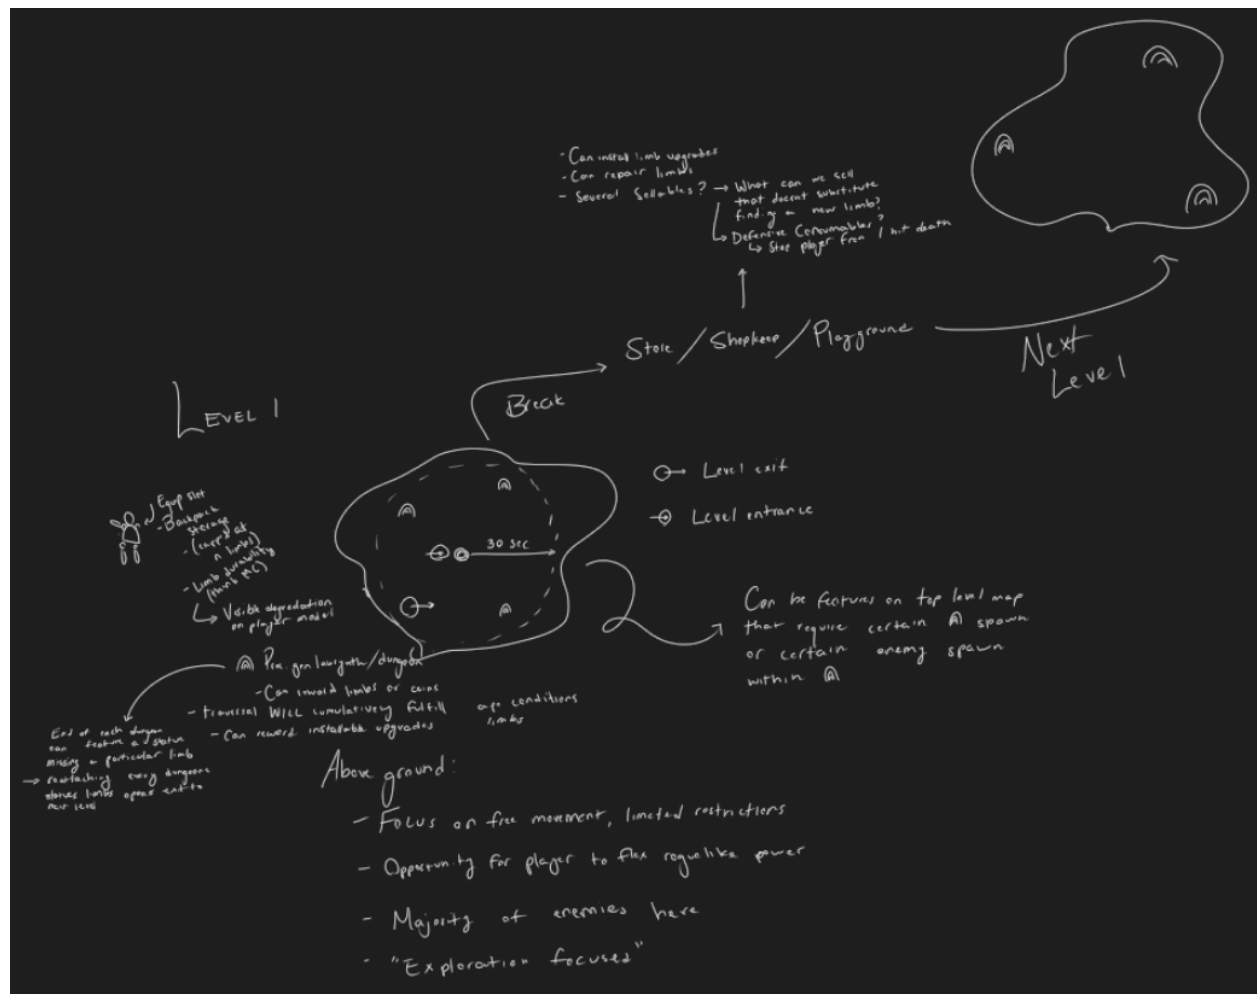 - Can install limb upgrades
- Can repair limbs
- Several Sellables? → What can we sell
that doesnt substitute
finding a new limb?
↳ Defensive Consumables?
↳ Stop player from 1 hit death
Store / Shopkeep / Playground
Next
Level
Break
LEVEL 1
Equip slot
- Backpack
storage
- (capped at
n limbs)
- Limb durability
(think MC)
↳ Visible degradation
on player model
30 sec
Level exit
Level entrance
Can be features on top level map
that require certain spawn
or certain enemy spawn
within
gen labyrinth/dungeon
- Can reward limbs or coins
- traversal WILL cumulatively fulfill conditions
- Can reward installable upgrades limbs
End of each dungeon
can feature a statue
missing a particular limb
→ reattaching every dungeons
statues limbs opens exit to
next level
Above ground:
- Focus on free movement, limited restrictions
- Opportunity for player to flex roguelike power
- Majority of enemies here
- "Exploration focused"